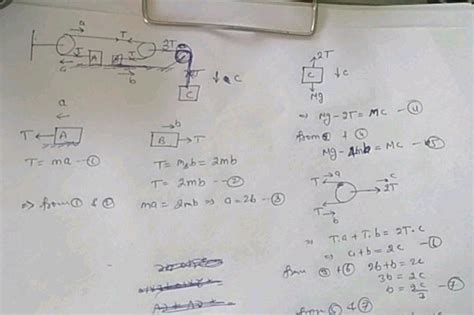 a
T
A
B
T
a
b
2T
C
↓ C
2T
C
↓ C
Mg
⇒ Mg - 2T = MC — ④
Mg - = MC — ⑤
a
T ← A
B → T
b
T = ma — ①
T = 2mb
T = 2mb — ②
⇒ from ① & ② ma = 2mb ⇒ a = 2b — ③
T a
c
2T
T b
⇒ T.a + T.b = 2T.C
⇒ a + b = 2c — ⑥
from ③ & ⑥ 2b + b = 2c
3b = 2c
b = 2c/3 — ⑦
& ⑦